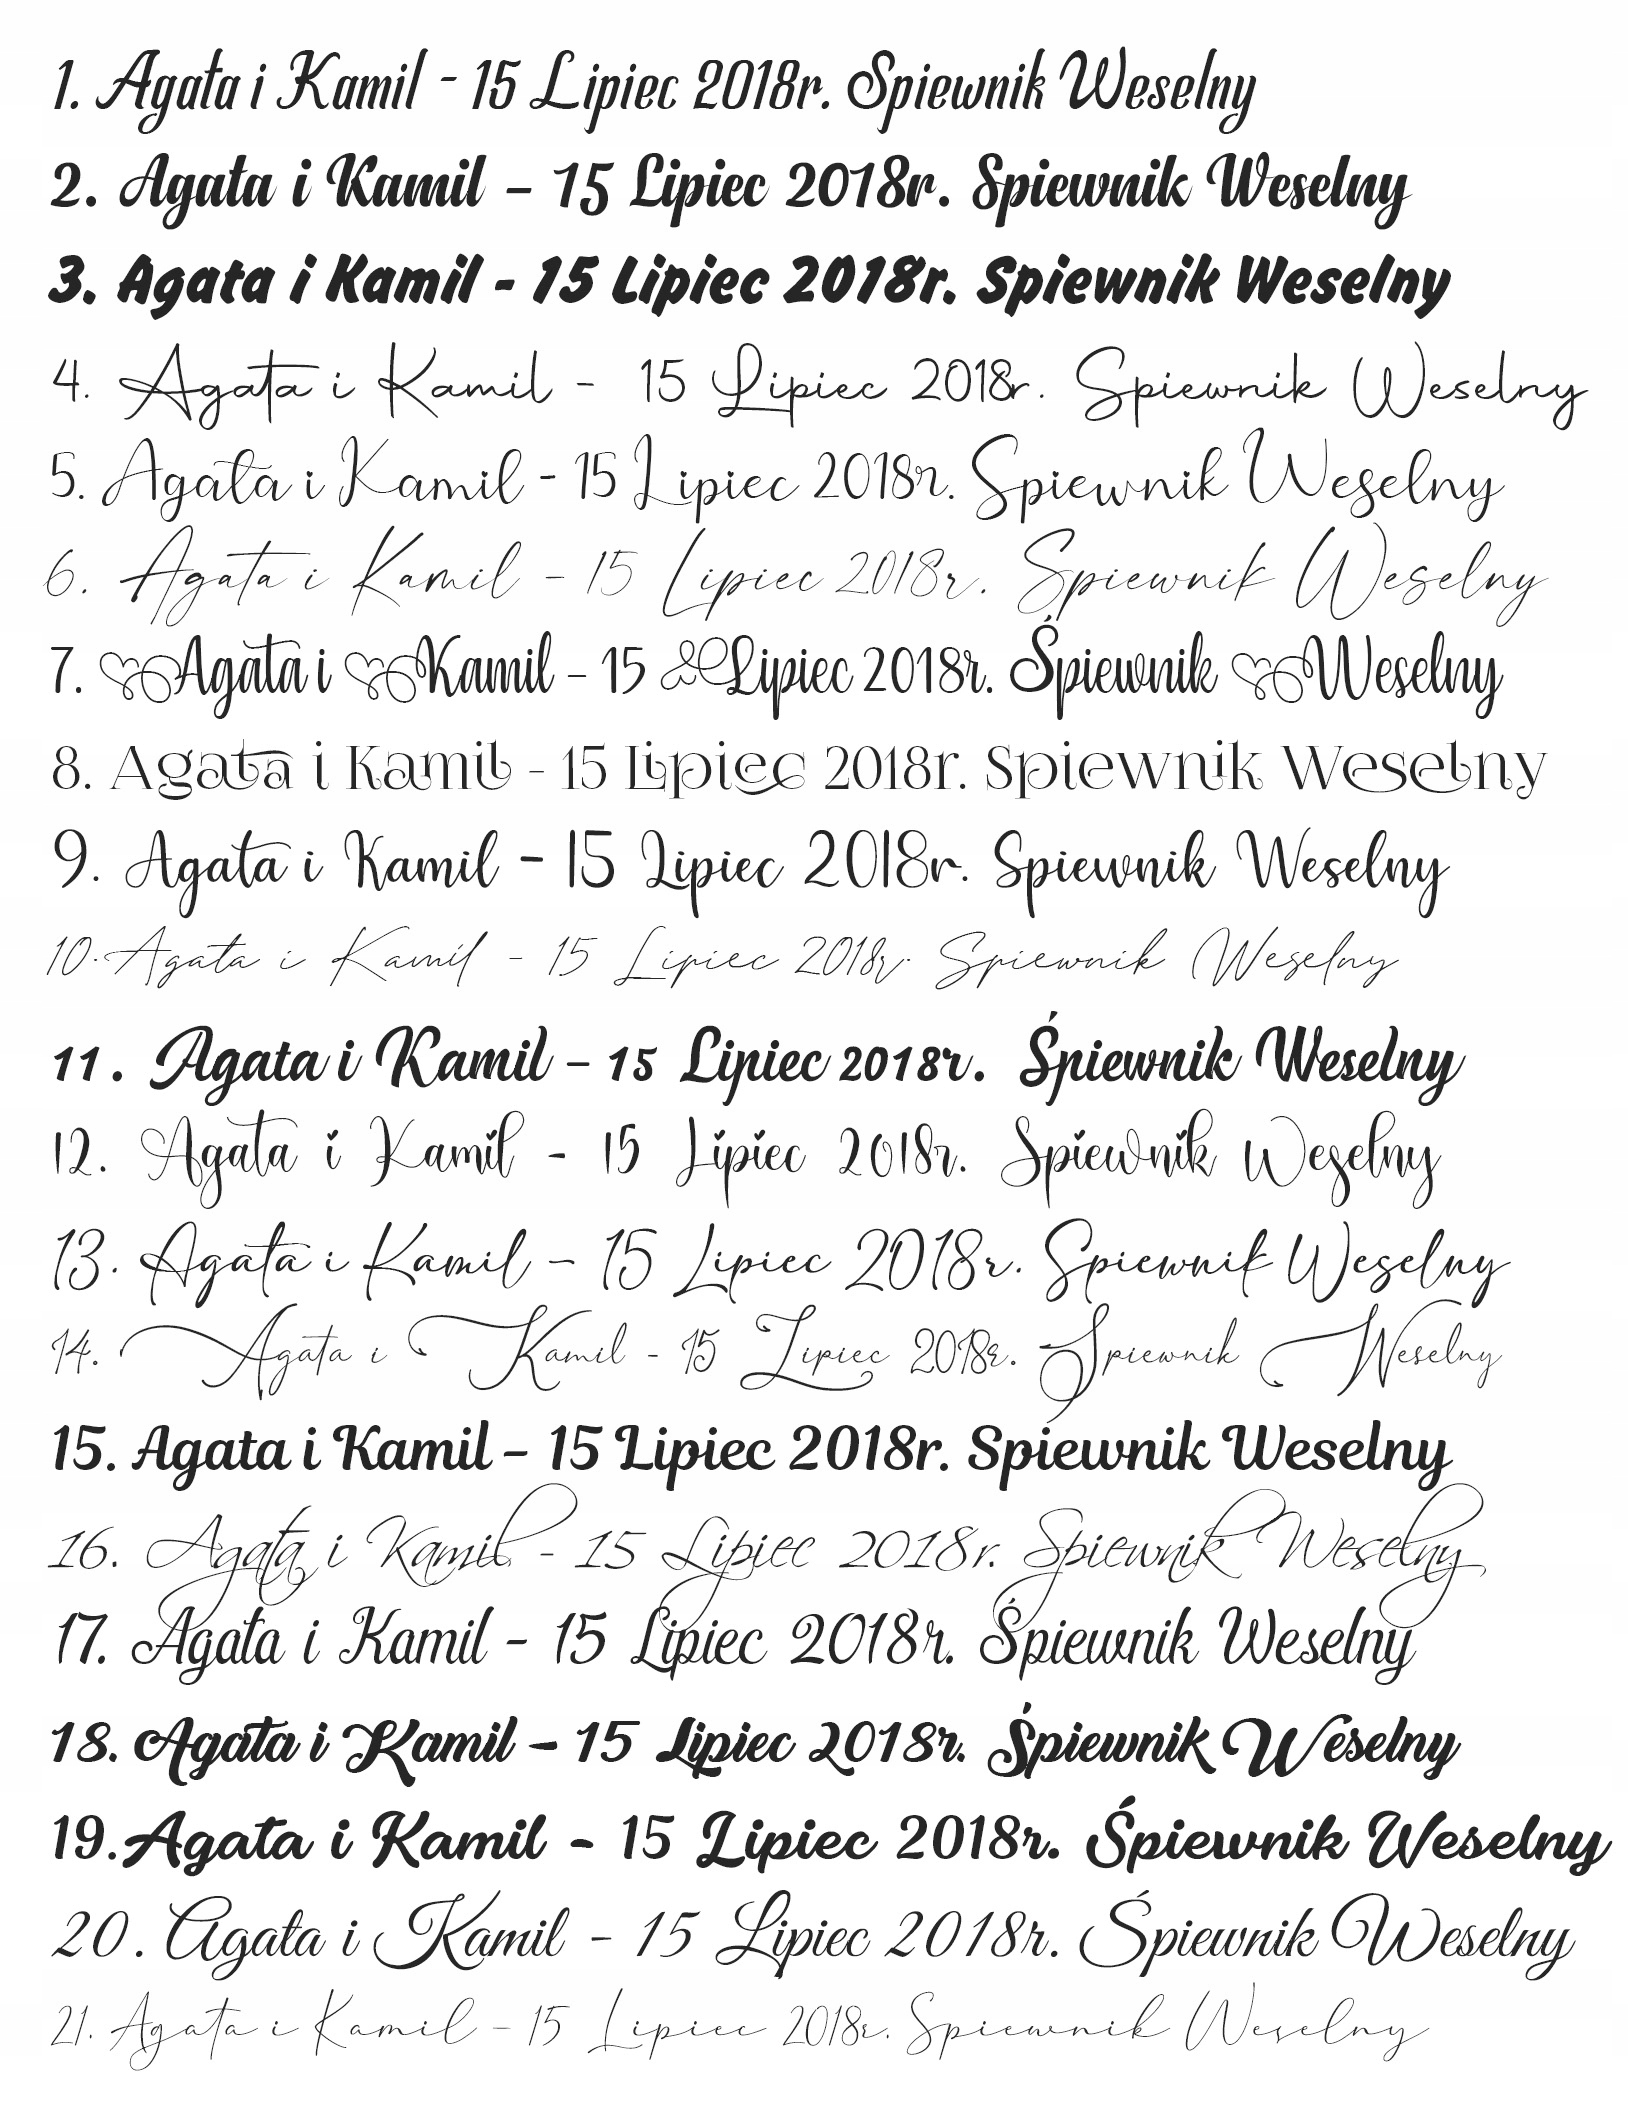 1. Agata i Kamil - 15 Lipiec 2018r. Spiewnik Weselny
2. Agata i Kamil – 15 Lipiec 2018r. Spiewnik Weselny
3. Agata i Kamil - 15 Lipiec 2018r. Spiewnik Weselny
4. Agata i Kamil - 15 Lipiec 2018r. Spiewnik Weselny
5. Agata i Kamil - 15 Lipiec 2018r. Spiewnik Weselny
6. Agata i Kamil – 15 Lipiec 2018r. Spiewnik Weselny
7. Agata i Kamil – 15 Lipiec 2018r. Śpiewnik Weselny
8. Agata i Kamil - 15 Lipiec 2018r. Spiewnik Weselny
9. Agata i Kamil - 15 Lipiec 2018r. Spiewnik Weselny
10. Agata i Kamil - 15 Lipiec 2018r. Spiewnik Weselny
11. Agata i Kamil – 15 Lipiec 2018r. Śpiewnik Weselny
12. Agata i Kamil - 15 Lipiec 2018r. Spiewnik Weselny
13. Agata i Kamil – 15 Lipiec 2018r. Spiewnik Weselny
14. Agata i Kamil - 15 Lipiec 2018r. Spiewnik Weselny
15. Agata i Kamil – 15 Lipiec 2018r. Spiewnik Weselny
16. Agata i Kamil - 15 Lipiec 2018r. Spiewnik Weselny
17. Agata i Kamil - 15 Lipiec 2018r. Śpiewnik Weselny
18. Agata i Kamil – 15 Lipiec 2018r. Śpiewnik Weselny
19. Agata i Kamil - 15 Lipiec 2018r. Śpiewnik Weselny
20. Agata i Kamil - 15 Lipiec 2018r. Śpiewnik Weselny
21. Agata i Kamil – 15 Lipiec 2018r. Spiewnik Weselny